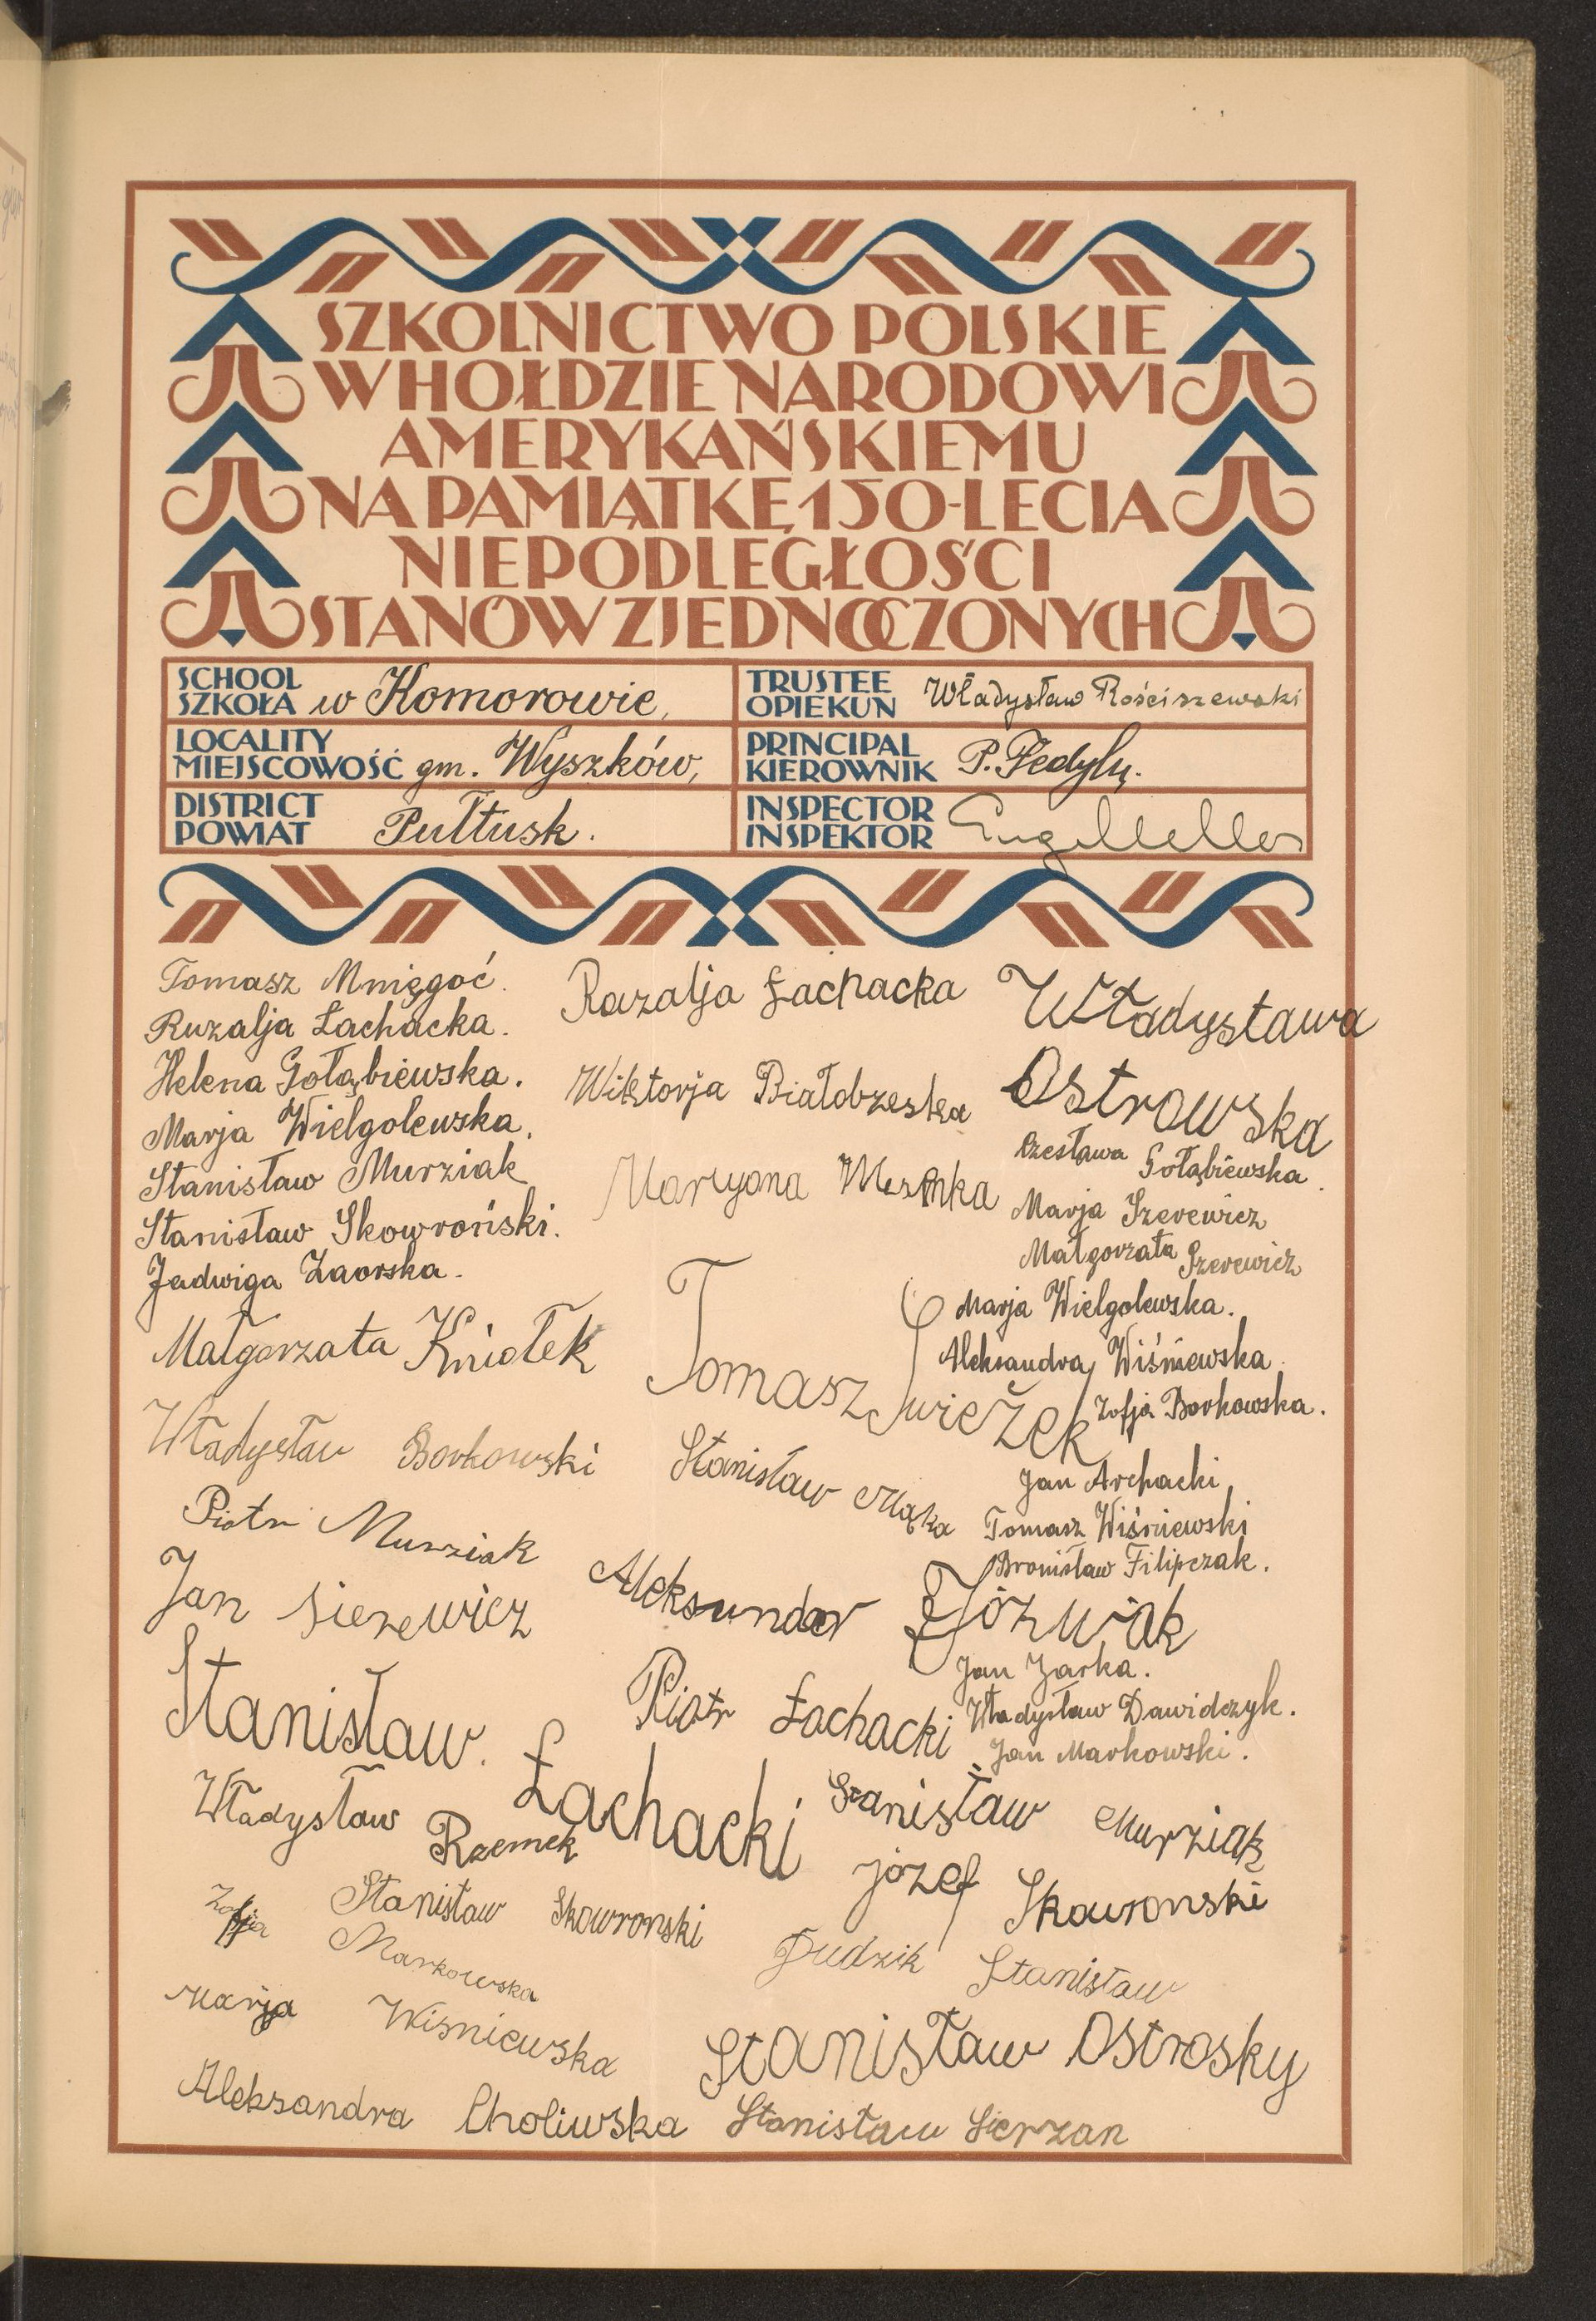 SZKOLNICTWO POLSKIE
W HOŁDZIE NARODOWI
AMERYKAŃSKIEMU
NA PAMIĄTKĘ 150-LECIA
NIEPODLEGŁOŚCI
STANÓW ZJEDNOCZONYCH
SCHOOL
SZKOŁA w Komorowie,
LOCALITY
MIEJSCOWOŚĆ gm. Wyszków,
DISTRICT
POWIAT Pułtusk.
TRUSTEE
OPIEKUN Władysław Rościszewski
PRINCIPAL
KIEROWNIK P.
INSPECTOR
INSPEKTOR
Tomasz Mnięgoć.
Ruzalja Łachacka.
Helena Gołąbiewska.
Marja Wielgolewska.
Stanisław Murziak
Stanisław Skowroński.
Jadwiga Zaorska.
Małgorzata Kniołek
Władysław Borkowski
Piotr Murziak
Jan Sierewicz
Stanisław. Łachacki
Władysław Rzemek
Stanisław Skowronski
Zofja Markowska
Marja Wisniewska
Aleksandra Choliwska
Razalja Łachacka
Wiktorja Białobrzeska
Maryana
Tomasz Swieżek
Stanisław Mąka
Aleksander Józwiak
Piotr Łachacki
Władysława
Ostrowska
Czesława Gołąbiewska.
Marja Szerewicz
Małgorzata Szerewicz
Marja Wielgolewska.
Aleksandra Wiśniewska.
Zofja Borkowska.
Jan Archacki
Tomasz Wiśniewski
Bronisław Filipczak.
Jan Zarka.
Władysław Dawidczyk.
Jan Markowski.
Stanisław Murziak
Józef Skowronski
Dudzik Stanisław
Stanisław Ostrosky
Stanisław Sierzan